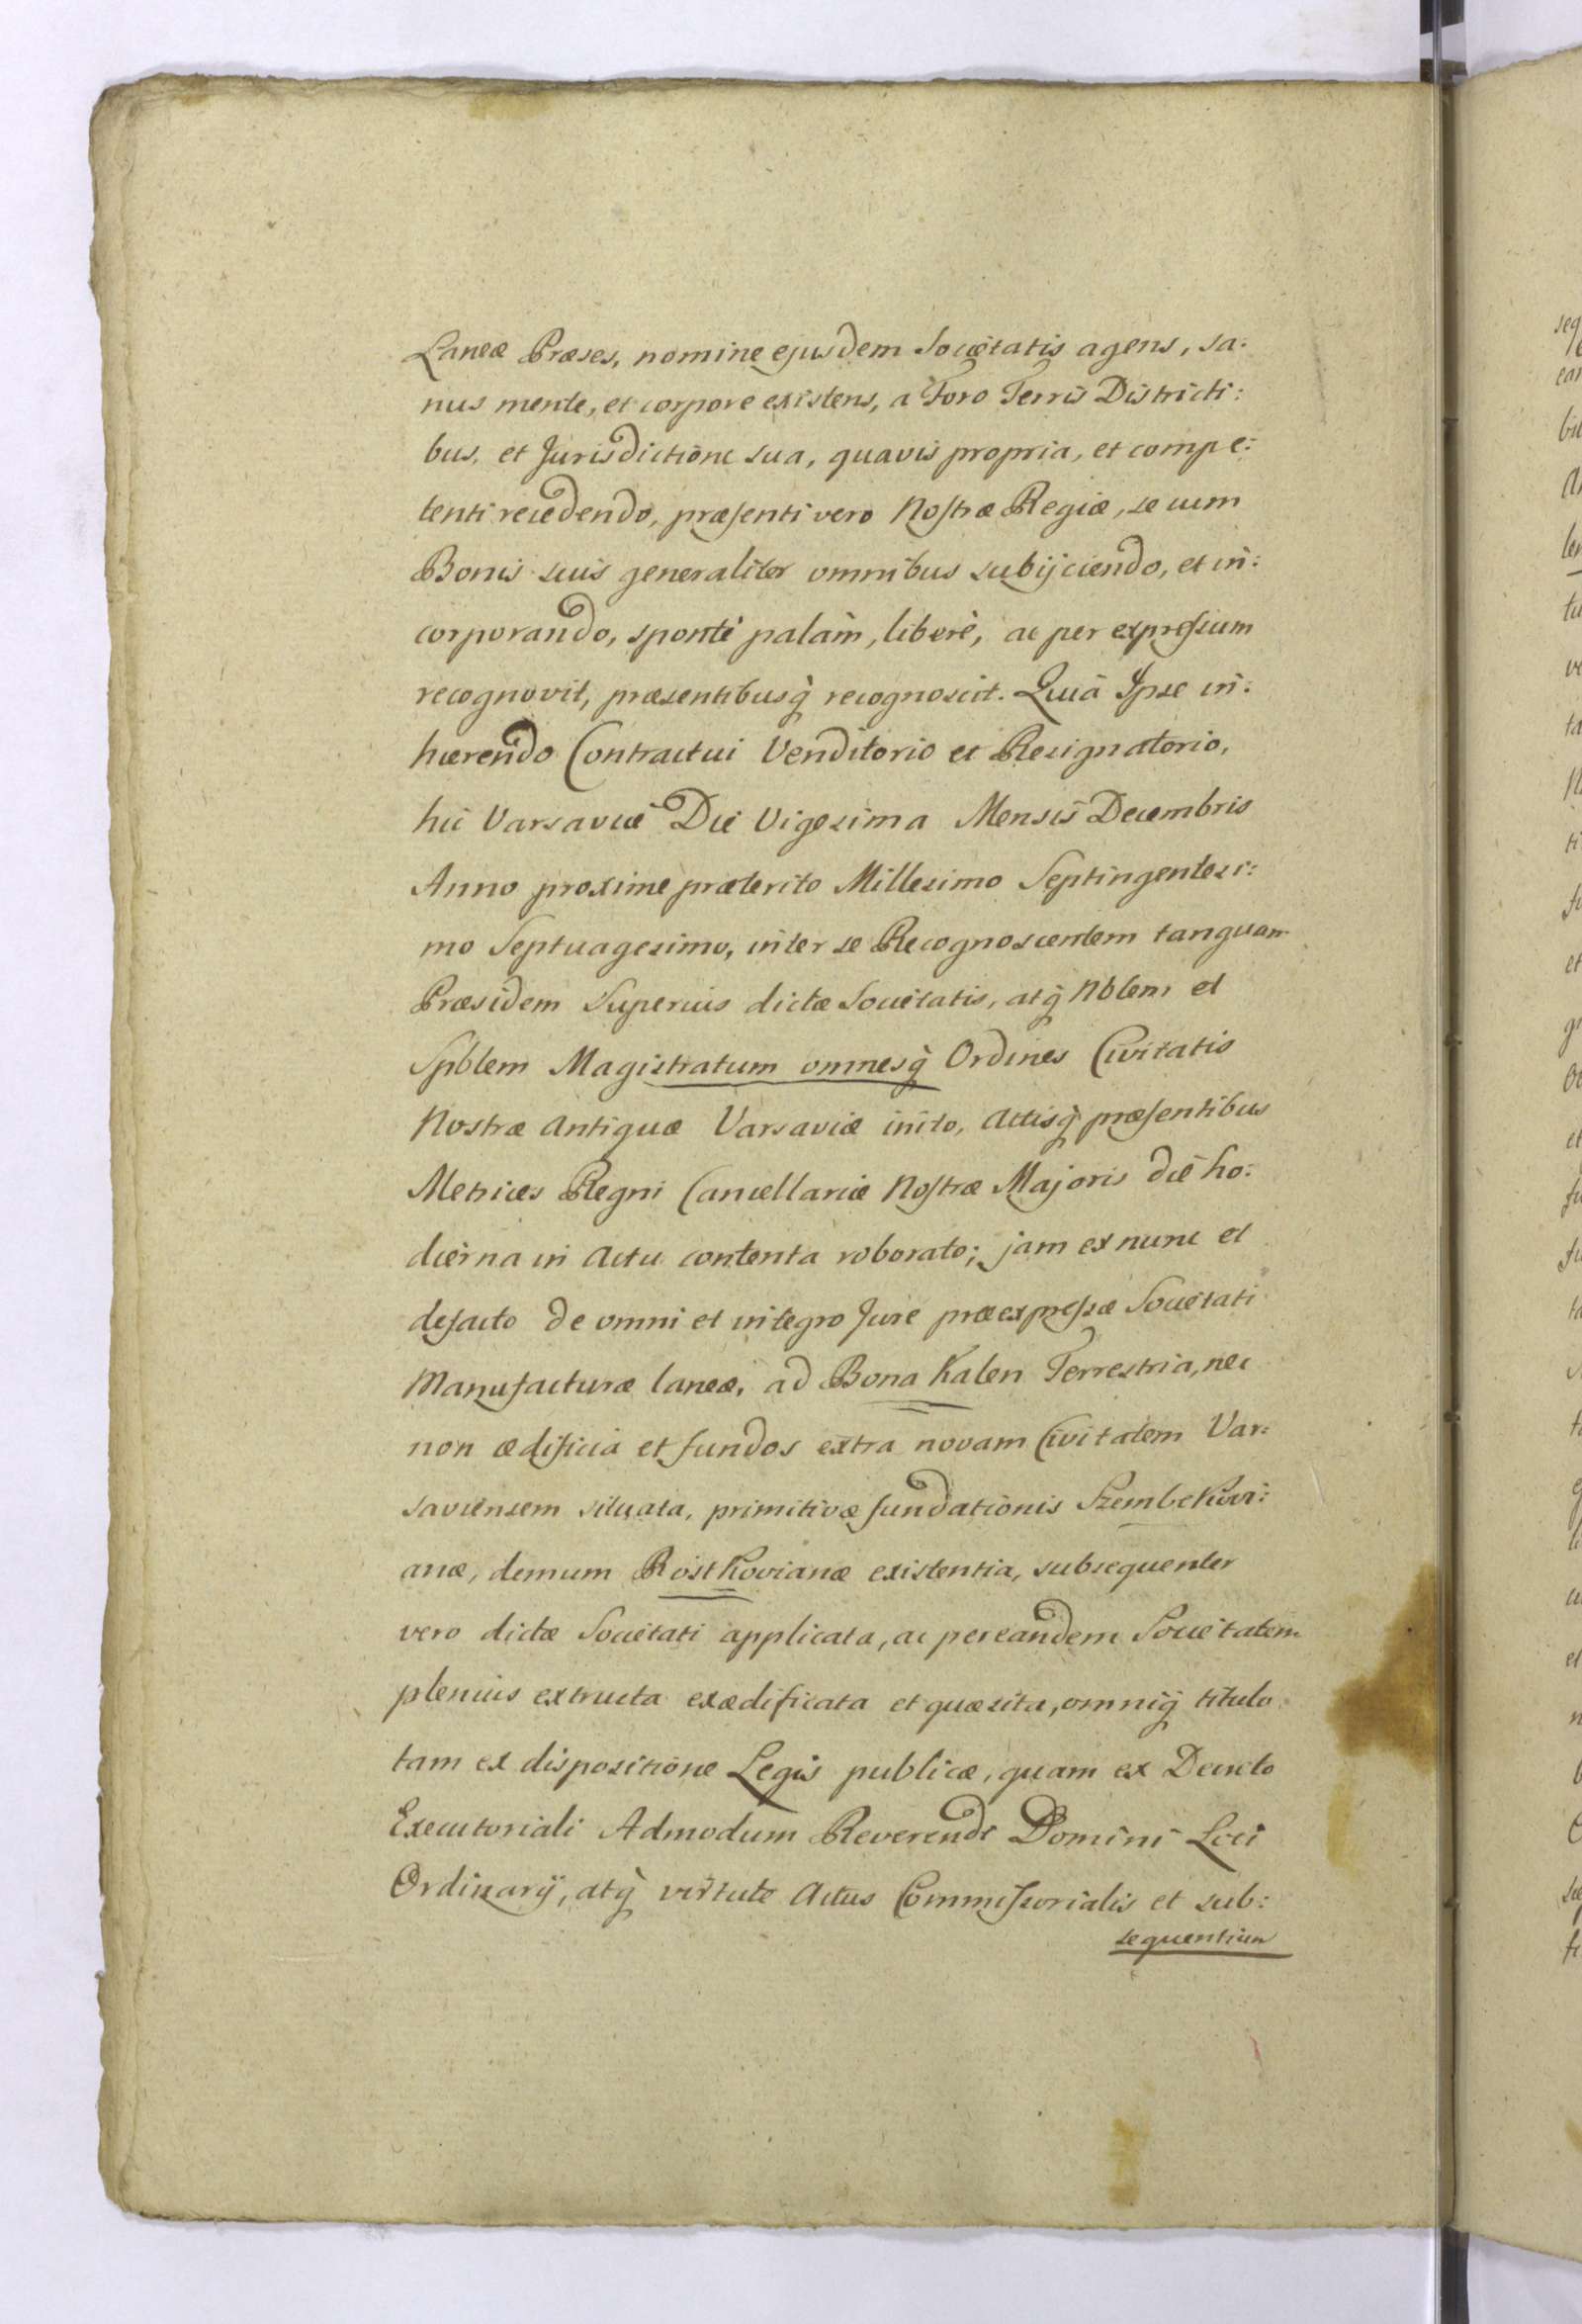 Laneæ Præses, nomine ejusdem Societatis agens, sa:
nus mente, et corpore existens, a Foro Terris Districti:
bus, et Jurisdictione sua, quavis propria, et compe:
tenti recedendo, præsenti vero Nostræ Regiæ, se cum
Bonis suis generaliter omnibus subijciendo, et in:
corporando, spontè palàm, liberè, ac per expressum
recognovit, præsentibusq̀ recognoscit. Quià Ipse in:
hærendo Contractui Venditorio et Resignatorio,
hic Varsaviæ Die Vigesima Mensis Decembris
Anno proxime præterito Millesimo Septingentesi:
mo Septuagesimo, inter se Recognoscentem tanquam
Præsidem Superius dictæ Societatis, atq̀ Nblem et
Spblem Magistratum omnesq̀ Ordines Civitatis
Nostræ Antiquæ Varsaviæ inito, Actisq̀ præsentibus
Metrices Regni Cancellariæ Nostræ Majoris die ho:
dierna in Actu contenta roborato; jam ex nunc et
defacto de omni et integro Jure præexpressæ Societati
Manufacturæ laneæ, ad Bona Kalen Terrestria, nec
non ædificia et fundos extra novam Civitatem Var:
saviensem situata, primitivæ fundationis Szembekovi:
anæ, demum Rostkovianæ existentia, subsequenter
vero dictæ Societati applicata, ac per eandem Societatem
plenius extructa exædificata et quæsita, omniq̀ titulo
tam ex dispositione Legis publicæ, quam ex Decreto
Executoriali Admodum Reverendi Domini Loci
Ordinarij, atq̀ virtute Actus Commissorialis et sub:
sequentium